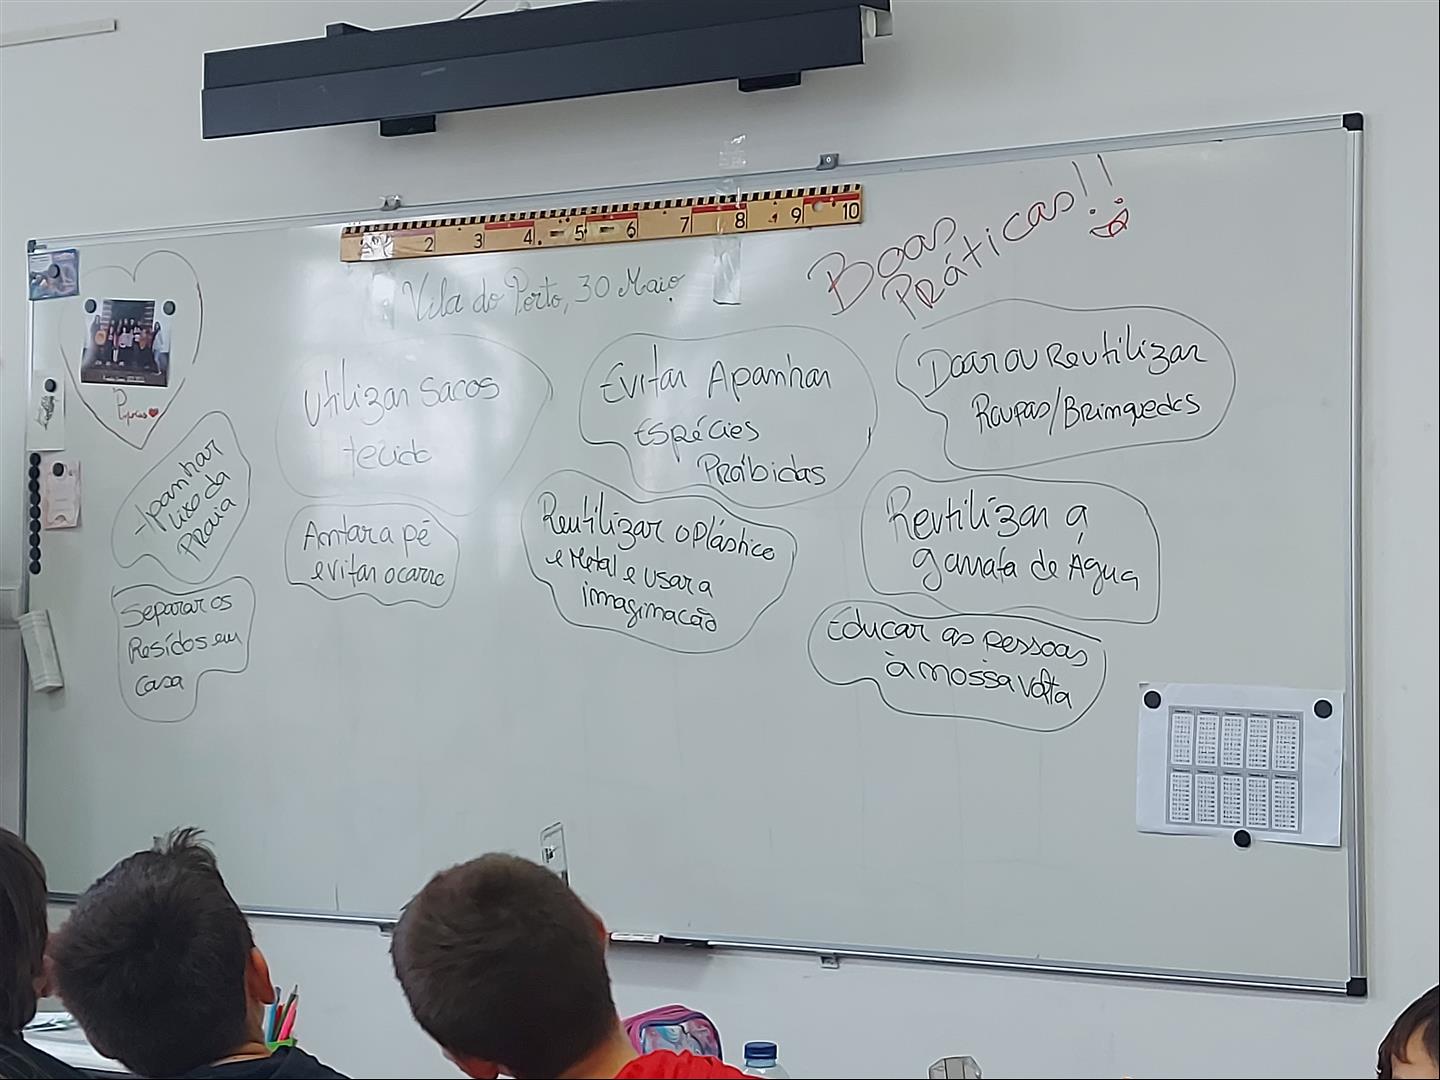 2 3 4 5 6 7 8 9 10
Vila do Porto, 30 Maio
Boas
Práticas!!
Utilizar Sacos
tecido
Evitar Apanhar
Espécies
Proíbidas
Doar ou Reutilizar
Roupas/Brinquedos
Apanhar
Lixo da
Praia
Andar a pé
evitar o carro
Reutilizar o Plástico
e Metal e usar a
imaginação
Reutilizar a
garrafa de Água
Separar os
Resídos em
casa
Educar as pessoas
à nossa volta